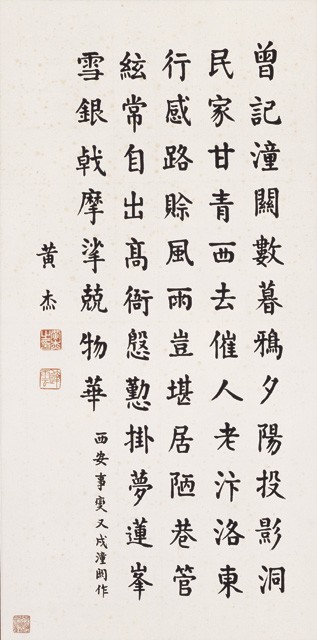 曾記潼關數暮鴉夕陽投影洞
民家甘青西去催人老汴洛東
行感路賒風雨豈堪居陋巷管
絃常自出髙衙慇懃掛夢蓮峯
雪銀戟摩挲兢物華
西安事變又戍潼関作
黄杰